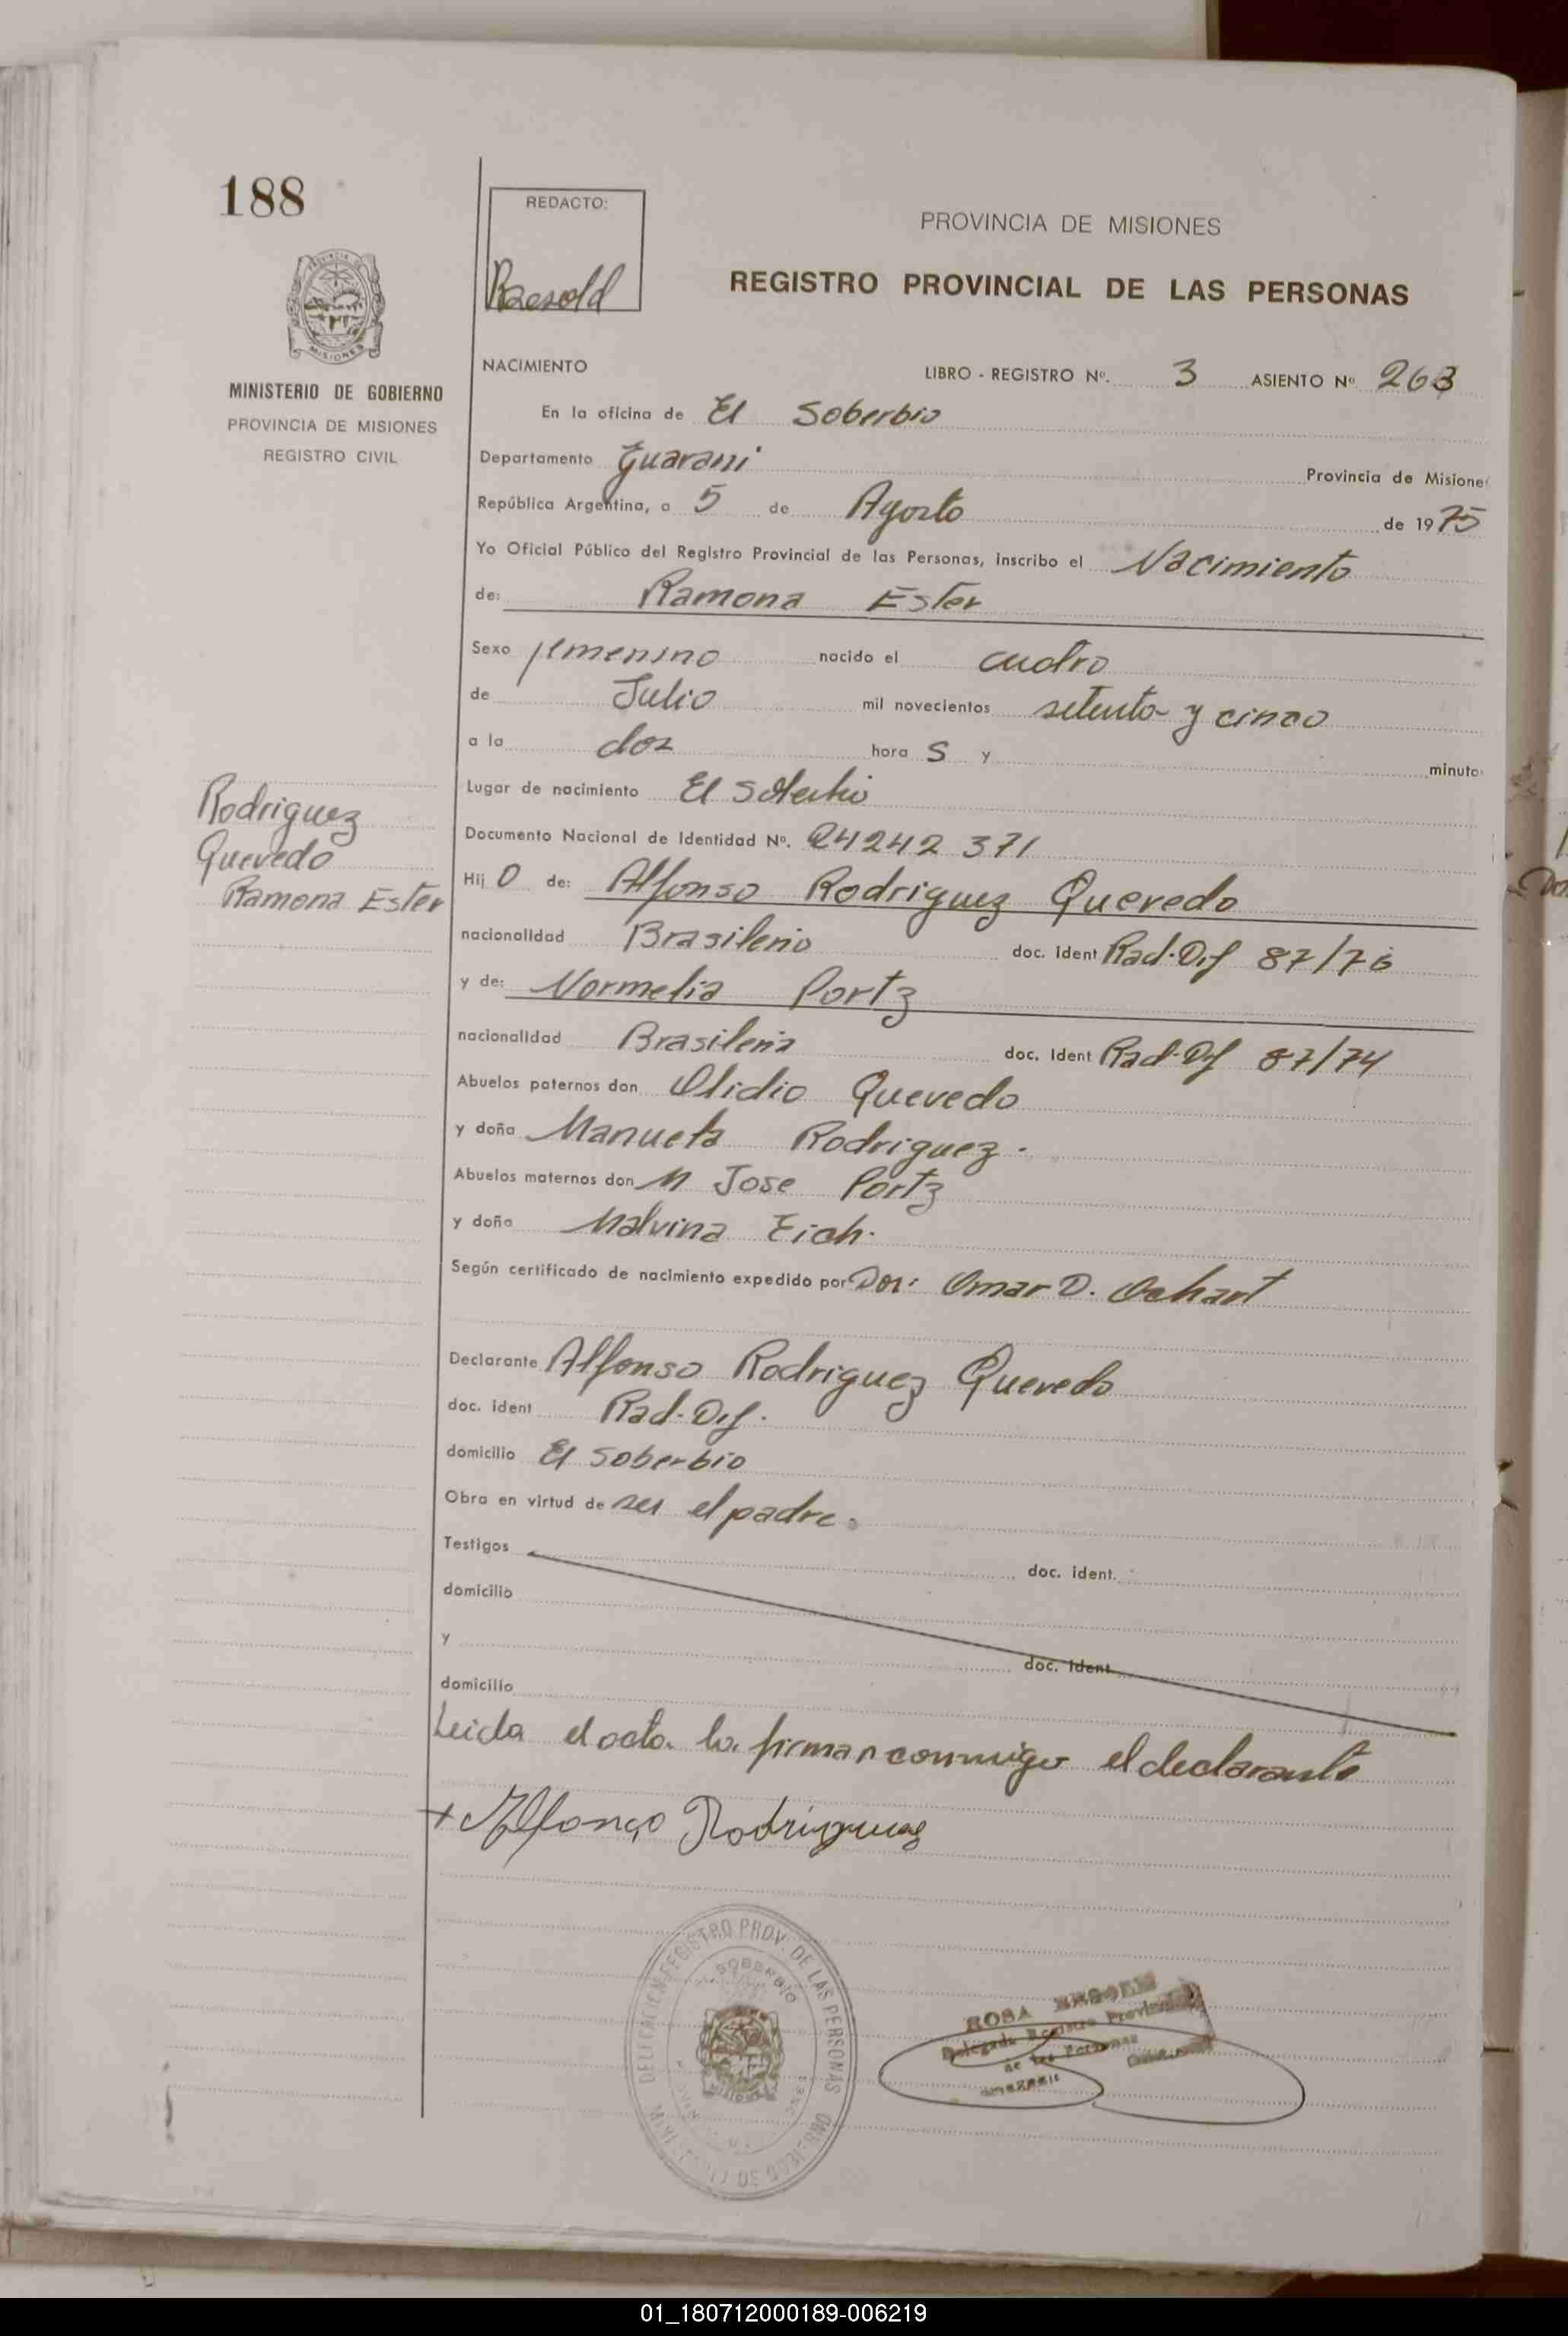 188
REDACTO:
PROVINCIA DE MISIONES
REGISTRO PROVINCIAL DE LAS PERSONAS
MISIONES
MINISTERIO DE GOBIERNO
PROVINCIA DE MISIONES
REGISTRO CIVIL
NACIMIENTO LIBRO - REGISTRO Nº. 3 ASIENTO Nº 263
En la oficina de El Soberbio
Departamento Guarani Provincia de Misione
República Argentina, a 5 de Agosto de 1975
Yo Oficial Público del Registro Provincial de las Personas, inscribo el Nacimiento
de: Ramona Ester
Sexo femenino nacido el cuatro
de Julio mil novecientos setenta y cinco
a la dos hora s y minuto
Lugar de nacimiento El Soberbio
Rodriguez
Quevedo
Ramona Ester
Documento Nacional de Identidad Nº. 24242 371
Hij o de: Alfonso Rodriguez Quevedo
nacionalidad Brasilerio doc. ident Rad. Dif 87/76
y de: Normelia Portz
nacionalidad Brasileria doc. ident Rad. Dif 87/74
Abuelos paternos don Olidio Quevedo
y doña Manuela Rodriguez.
Abuelos maternos don M Jose Portz
y doña Malvina Eich.
Según certificado de nacimiento expedido por Dor: Omar D. Ochart
Declarante Alfonso Rodriguez Quevedo
doc. ident Rad. Dif.
domicilio El Soberbio
Obra en virtud de ser el padre.
Testigos doc. ident.
domicilio
y doc. ident
domicilio
Leida el acta la firman conmigo el declarante
+ Alfonço Rodrigues
DELEGACION REGISTRO PROV. DE LAS PERSONAS
SOBERBIO
ROSA
Delegada Registro Provincial
de las Personas
01_180712000189-006219